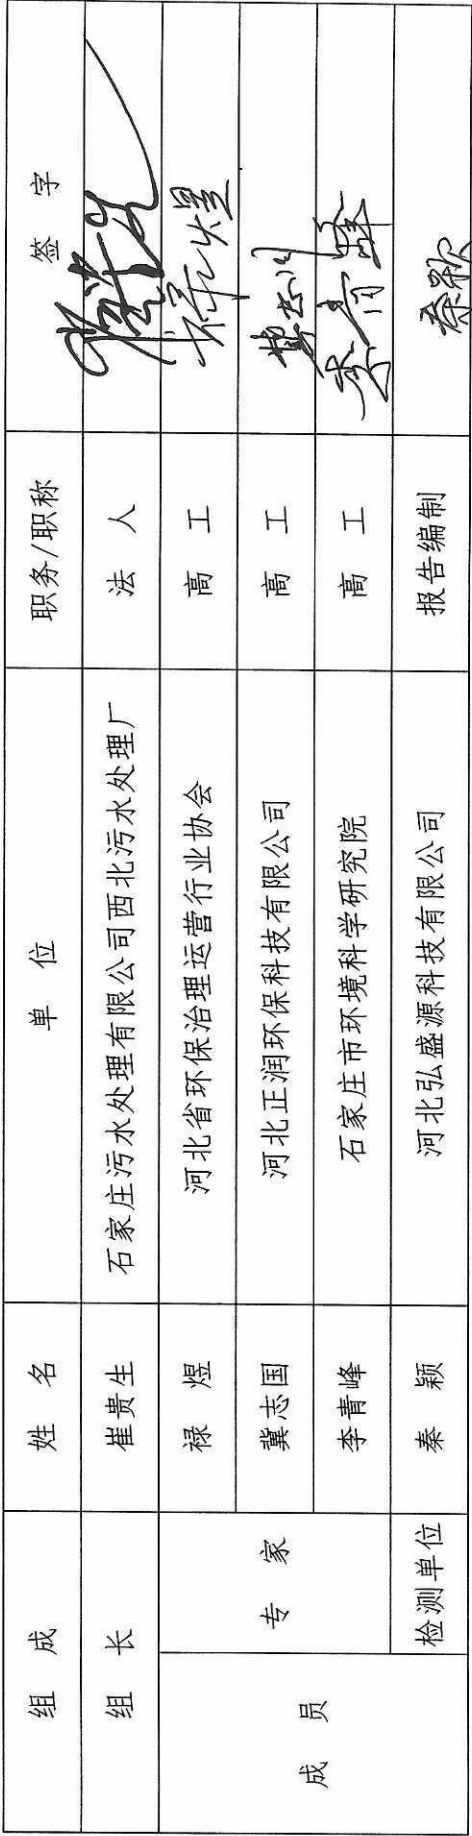 组 成 姓 名 单 位 职务/职称 签 字
组 长 崔贵生 石家庄污水处理有限公司西北污水处理厂 法 人
成 员 专 家 禄 煜 河北省环保治理运营行业协会 高 工
冀志国 河北正润环保科技有限公司 高 工
李青峰 石家庄市环境科学研究院 高 工
检测单位 秦 颖 河北弘盛源科技有限公司 报告编制 秦颖